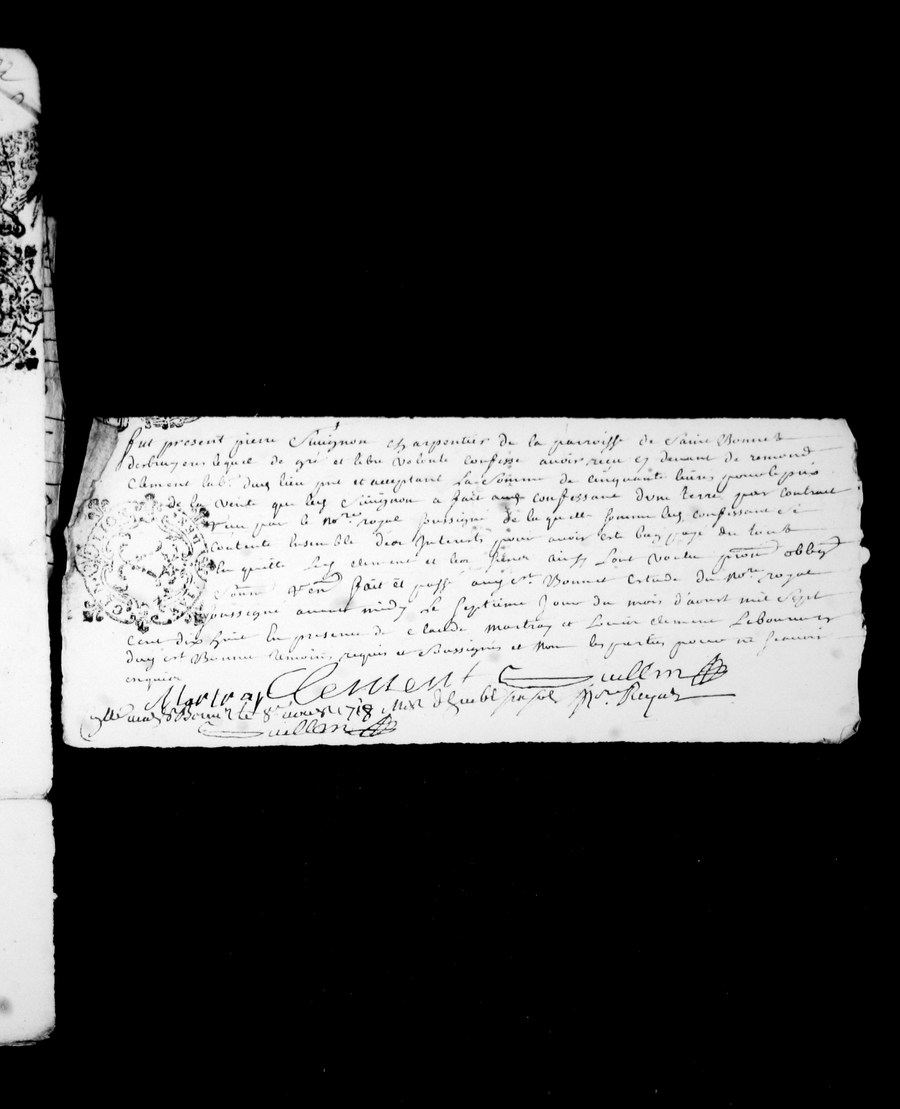 fut present pierre Suignon charpentier de la parroisse de Saint Bonnet
desbruyeres lequel de gré et libre volonté confesse avoir receu cy devant de remond
Clement lab. dud lieu pnt et acceptant La Somme de Cinquante livres pour le prix
de la Vente que led Suignon a fait aud confessant dune terre par contract
receu par le No.re royal soussigné de laquelle somme led confessant Se
contente ensemble des Interests pour avoir esté bien payé du tout
fait et passé aud St Bonnet estude du No.re royal
soussigné avant midy Le Septieme Jour du mois d'avril mil Sept
Cent dix huit En presence de Claude Martray et Clement
dud St Bonnet temoins requis et Soussignés et Non les parties pour ne scavoir
enquis
Martray Clement Guillin
St Bonnet le 8e avril 1718 No.re Royal
Guillin